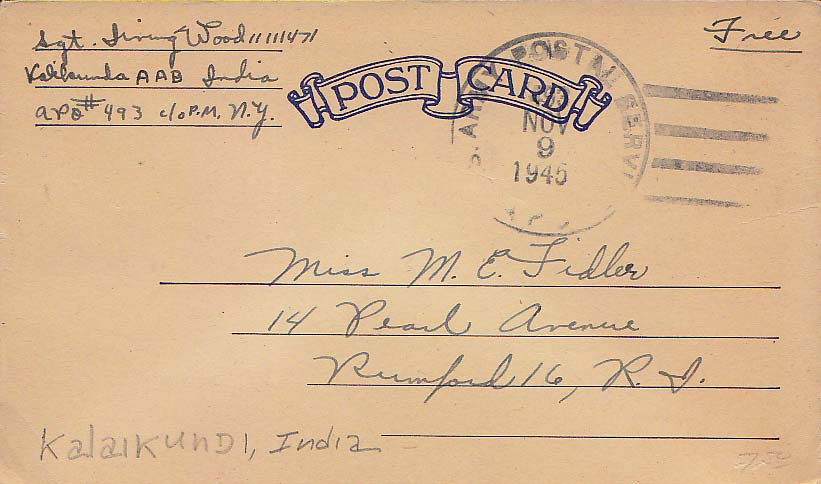 Sgt. Irving Wood 11111471
Free
Kalikunda AAB India
APO #493 c/o P.M. N.Y.
POST CARD
U.S. ARMY POSTAL SERVICE
NOV
9
1945
A.P.O.
Miss M. E. Fidler
14 Pearl Avenue
Rumford 16, R. I.
Kalaikundi, India